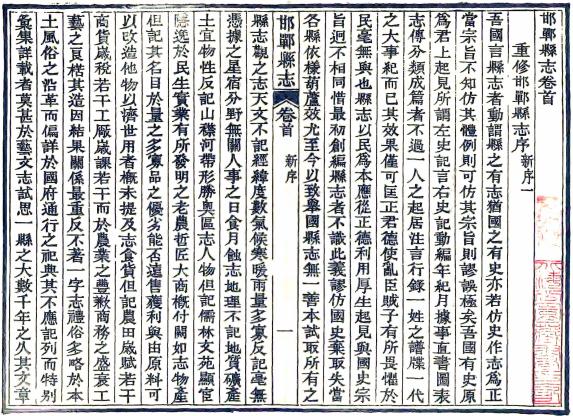 邯鄲縣志卷首
重修邯鄲縣志序 新序一
吾國言縣志者動謂縣之有志猶國之有史亦若仿史作志爲正
當宗旨不知仿其體例則可仿其宗旨則謬誤極矣吾國有史原
爲君上起見所謂左史記言右史記動編年紀月據事直書圖表
志傳分類成篇者不過一人之起居注言行錄一姓之譜牒一代
之大事紀而已其效果僅可匡正君德使亂臣賊子有所畏懼於
民毫無與也縣志以民爲本應從正德利用厚生起見與國史宗
旨迥不相同惜最初創編縣志者不識此義謬仿國史棄取失當
各縣依樣葫蘆效尤至今以致舉國縣志無一善本試取所有之
邯鄲縣志 卷首 新序 一
縣志觀之志天文不記經緯度數氣候寒暖雨量多寡反記毫無
憑據之星宿分野無關人事之日食月蝕志地理不記地質礦產
土宜物性反記山礫河帶形勝奧區志人物但記儒林文苑顯宦
隱逸於民生實業有所發明之老農哲匠大商槪付闕如志物產
但記其名目於量之多寡品之優劣能否遠售獲利與由原料可
以改造他物以濟世用者槪未提及志食貨但記農田歲賦若干
商貨歲稅若干工廠歲課若干而於農業之豐歉商務之盛衰工
藝之良楛其造因結果關係最重反不著一字志禮俗多略於本
土風俗之沿革而偏詳於國府通行之祀典其不應記列而特別
彙集詳載者莫甚於藝文志試思一縣之大數千年之久其文章